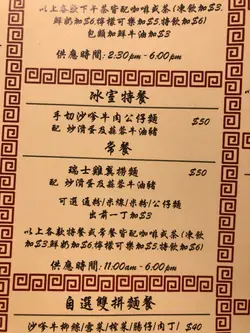 以上各款下午茶皆配咖啡或茶(凍飲加$3,
鮮奶加$6,檸檬可樂加$3,特飲加$6)
包類加鮮牛油加$3
供應時間: 2:30pm - 6:00pm
冰室特餐
手切沙嗲牛肉公仔麵 $50
配 炒滑蛋及蒜蓉牛油豬
常餐
瑞士雞翼撈麵 $50
配 炒滑蛋及蒜蓉牛油豬
可選 通粉/米線/米粉/公仔麵
出前一丁加$3
以上各款特餐或常餐皆配咖啡或茶(凍飲
加$3,鮮奶加$6,檸檬可樂加$3,特飲加$6)
供應時間: 11:00am - 6:00pm
自選雙拼麵餐
沙嗲牛柳絲/雪菜/榨菜/腸仔/肉丁/ $40